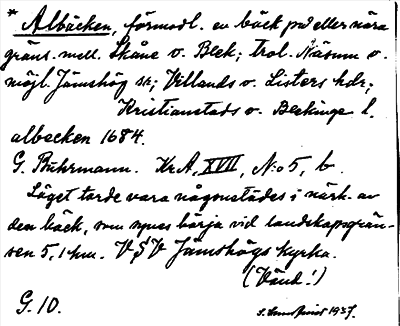 * Albäcken, förmodl. en bäck på eller nära
gräns. mell. Skåne o. Blek; trol. Näsum o.
möjl. Jämshög sn; Villands o. Listers hdr;
Kristianstads o. Blekinge l.
albecken 1684.
G. Buhrmann. Kr A, XVII, No 5, b.
Läget torde vara någonstädes i närh. av
den bäck, som synes börja vid landskapsgrän-
sen 5,1 km. VSV Jämshögs kyrka.
(Vänd!)
G. 10.
1937.